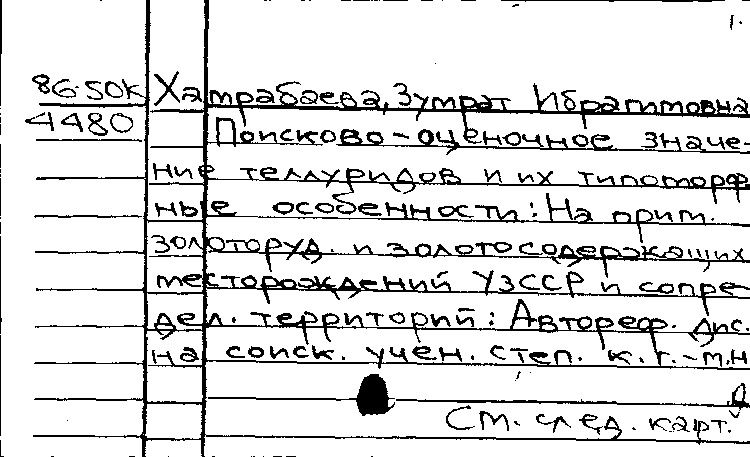 1.
86-50К Хатрабаева, Зумрат Ибрагимовна
4480 Поисково-оценочное значе-
ние теллуридов и их типоморф
ные особенности: На прим.
золоторуд. и золотосодержащих
месторождений УзССР и сопре
дел. территорий: Автореф. дис.
на соиск. учен. степ. к. г.-м.н
См. след. карт.